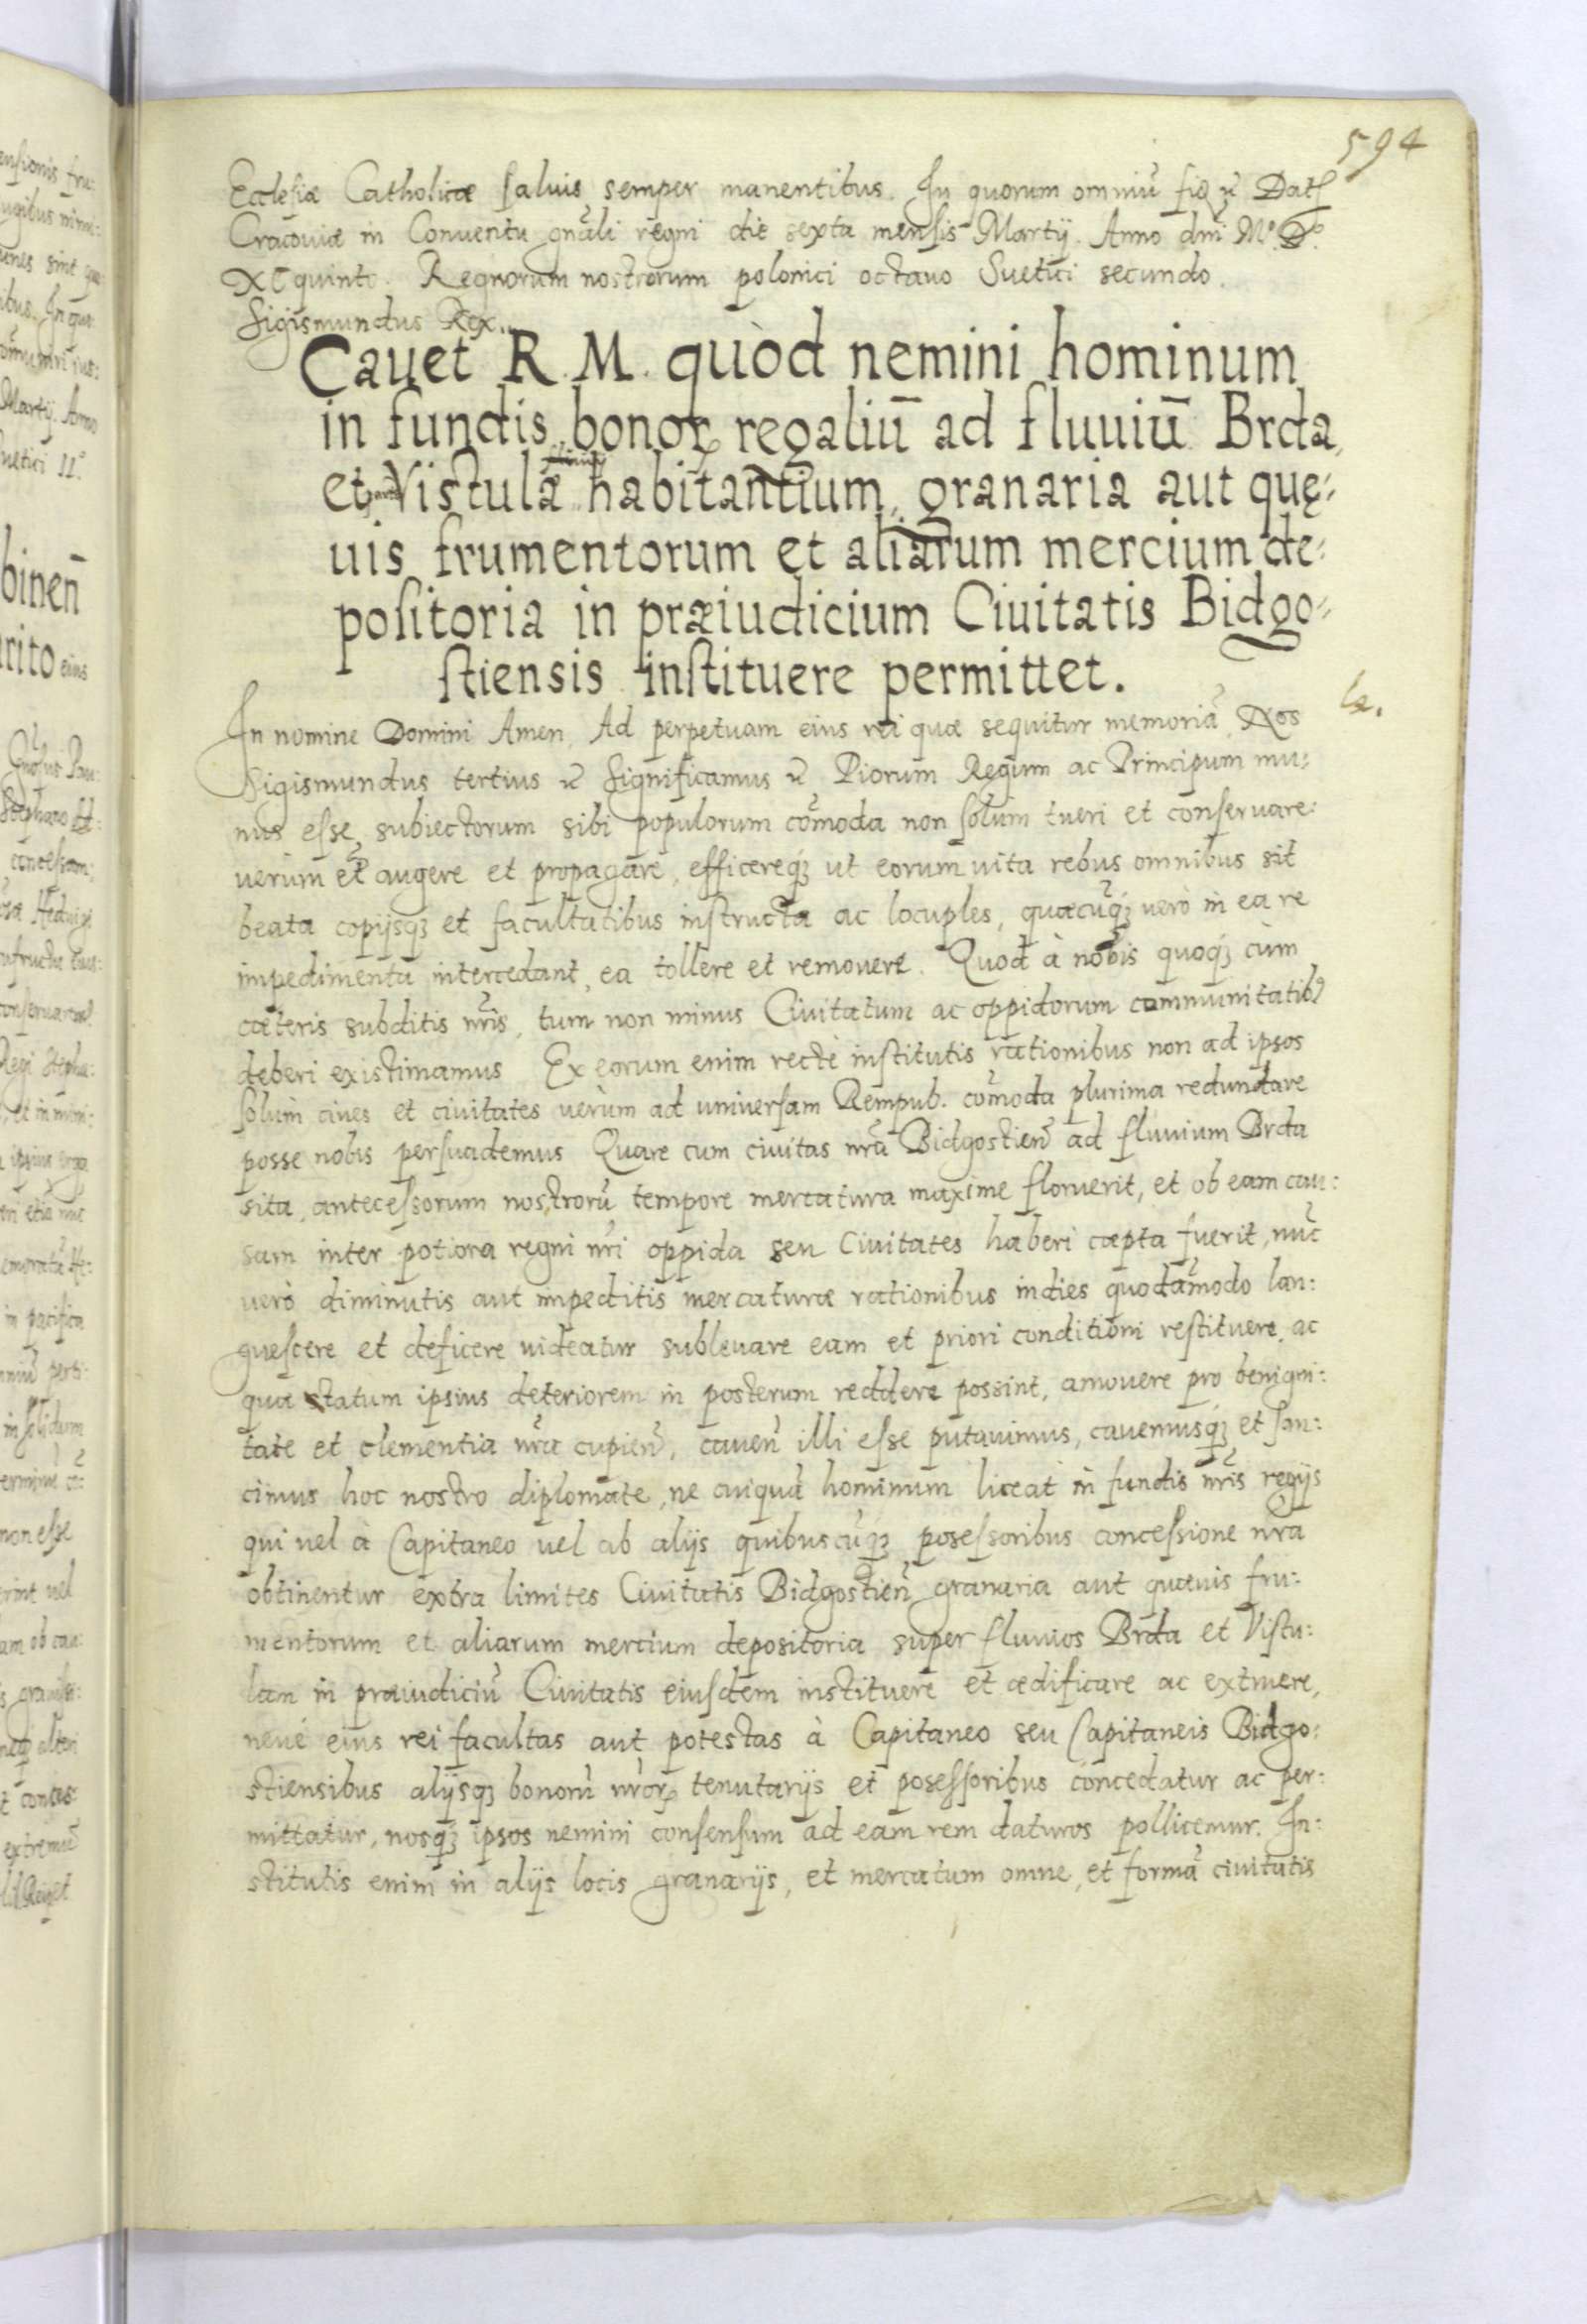 594
Ecclesiæ Catholicæ saluis semper manentibus. In quorum omniũ fiq̃ ꝛc Datꝭ
Cracouiæ in Conuentu gnãli regni die sexta mensis Martij. Anno dni Mº. Dº.
XC quinto. Regnorum nostrorum polonici octauo Suetici secundo.
Sigismundus Rex.
Cauet R. M. quòd nemini hominum
in fundis bonoꝝ regaliũ ad fluuiũ Brda
et Vistulã habitantium, granaria aut quę-
uis frumentorum et aliarum mercium de-
positoria in præiudicium Ciuitatis Bidgo-
stiensis instituere permittet.
In nomine Domini Amen. Ad perpetuam eius rei quæ sequitur memoriã, Nos
Sigismundus tertius ꝛc Significamus ꝛc Piorum Regum ac Principum mu-
nus esse, subiectorum sibi populorum cõmoda non solùm tueri et conseruare:
uerùm et augere et propagare, efficereqꝫ ut eorum uita rebus omnibus sit
beata copijsqꝫ et facultatibus instructa ac locuples, quæcũqꝫ uerò in ea re
impedimenta intercedant, ea tollere et remouere. Quod à nobis quoqꝫ cùm
cæteris subditis nr̃is, tum non minus Ciuitatum ac oppidorum communitatibꝰ
deberi existimamus Ex eorum enim rectè institutis rationibus non ad ipsos
solùm ciues et ciuitates uerùm ad uniuersam Rempub. cõmoda plurima redundare
posse nobis persuademus Quare cum ciuitas nr̃a Bidgostieñ ad fluuium Brda
sita, antecessorum nostrorũ tempore mercatura maxime floruerit, et ob eam cau:
sam inter potiora regni nr̃i oppida seu Ciuitates haberi cæpta fuerit, nũc
uerò diminutis aut impeditis mercaturæ rationibus indies quodãmodo lan:
guescere et deficere uideatur subleuare eam et priori conditioni restituere, ac
quæ statum ipsius deteriorem in posterum reddere possint, amouere pro benigni:
tate et clementia nr̃a cupieñ, caueñ illi esse putauimus, cauemusqꝫ et san:
cimus hoc nostro diplomate, ne cuiquã hominum liceat in fundis nr̃is regijs
qui uel à Capitaneo uel ab alijs quibuscũqꝫ posessoribus concessione nr̃a
obtinentur extra limites Ciuitatis Bidgostieñ granaria aut quæuis fru:
mentorum et aliarum mercium depositoria super fluuios Brda et Vistu:
lam in præiudiciũ Ciuitatis eiusdem instituere et ædificare ac extruere,
neue eius rei facultas aut potestas à Capitaneo seu Capitaneis Bidgo:
stiensibus alijsqꝫ bonorũ nr̃oꝝ tenutarijs et posessoribus concedatur ac per:
mittatur, nosqꝫ ipsos nemini consensum ad eam rem daturos pollicemur. In:
stitutis enim in alijs locis granarijs, et mercatum omne, et formã ciuitatis